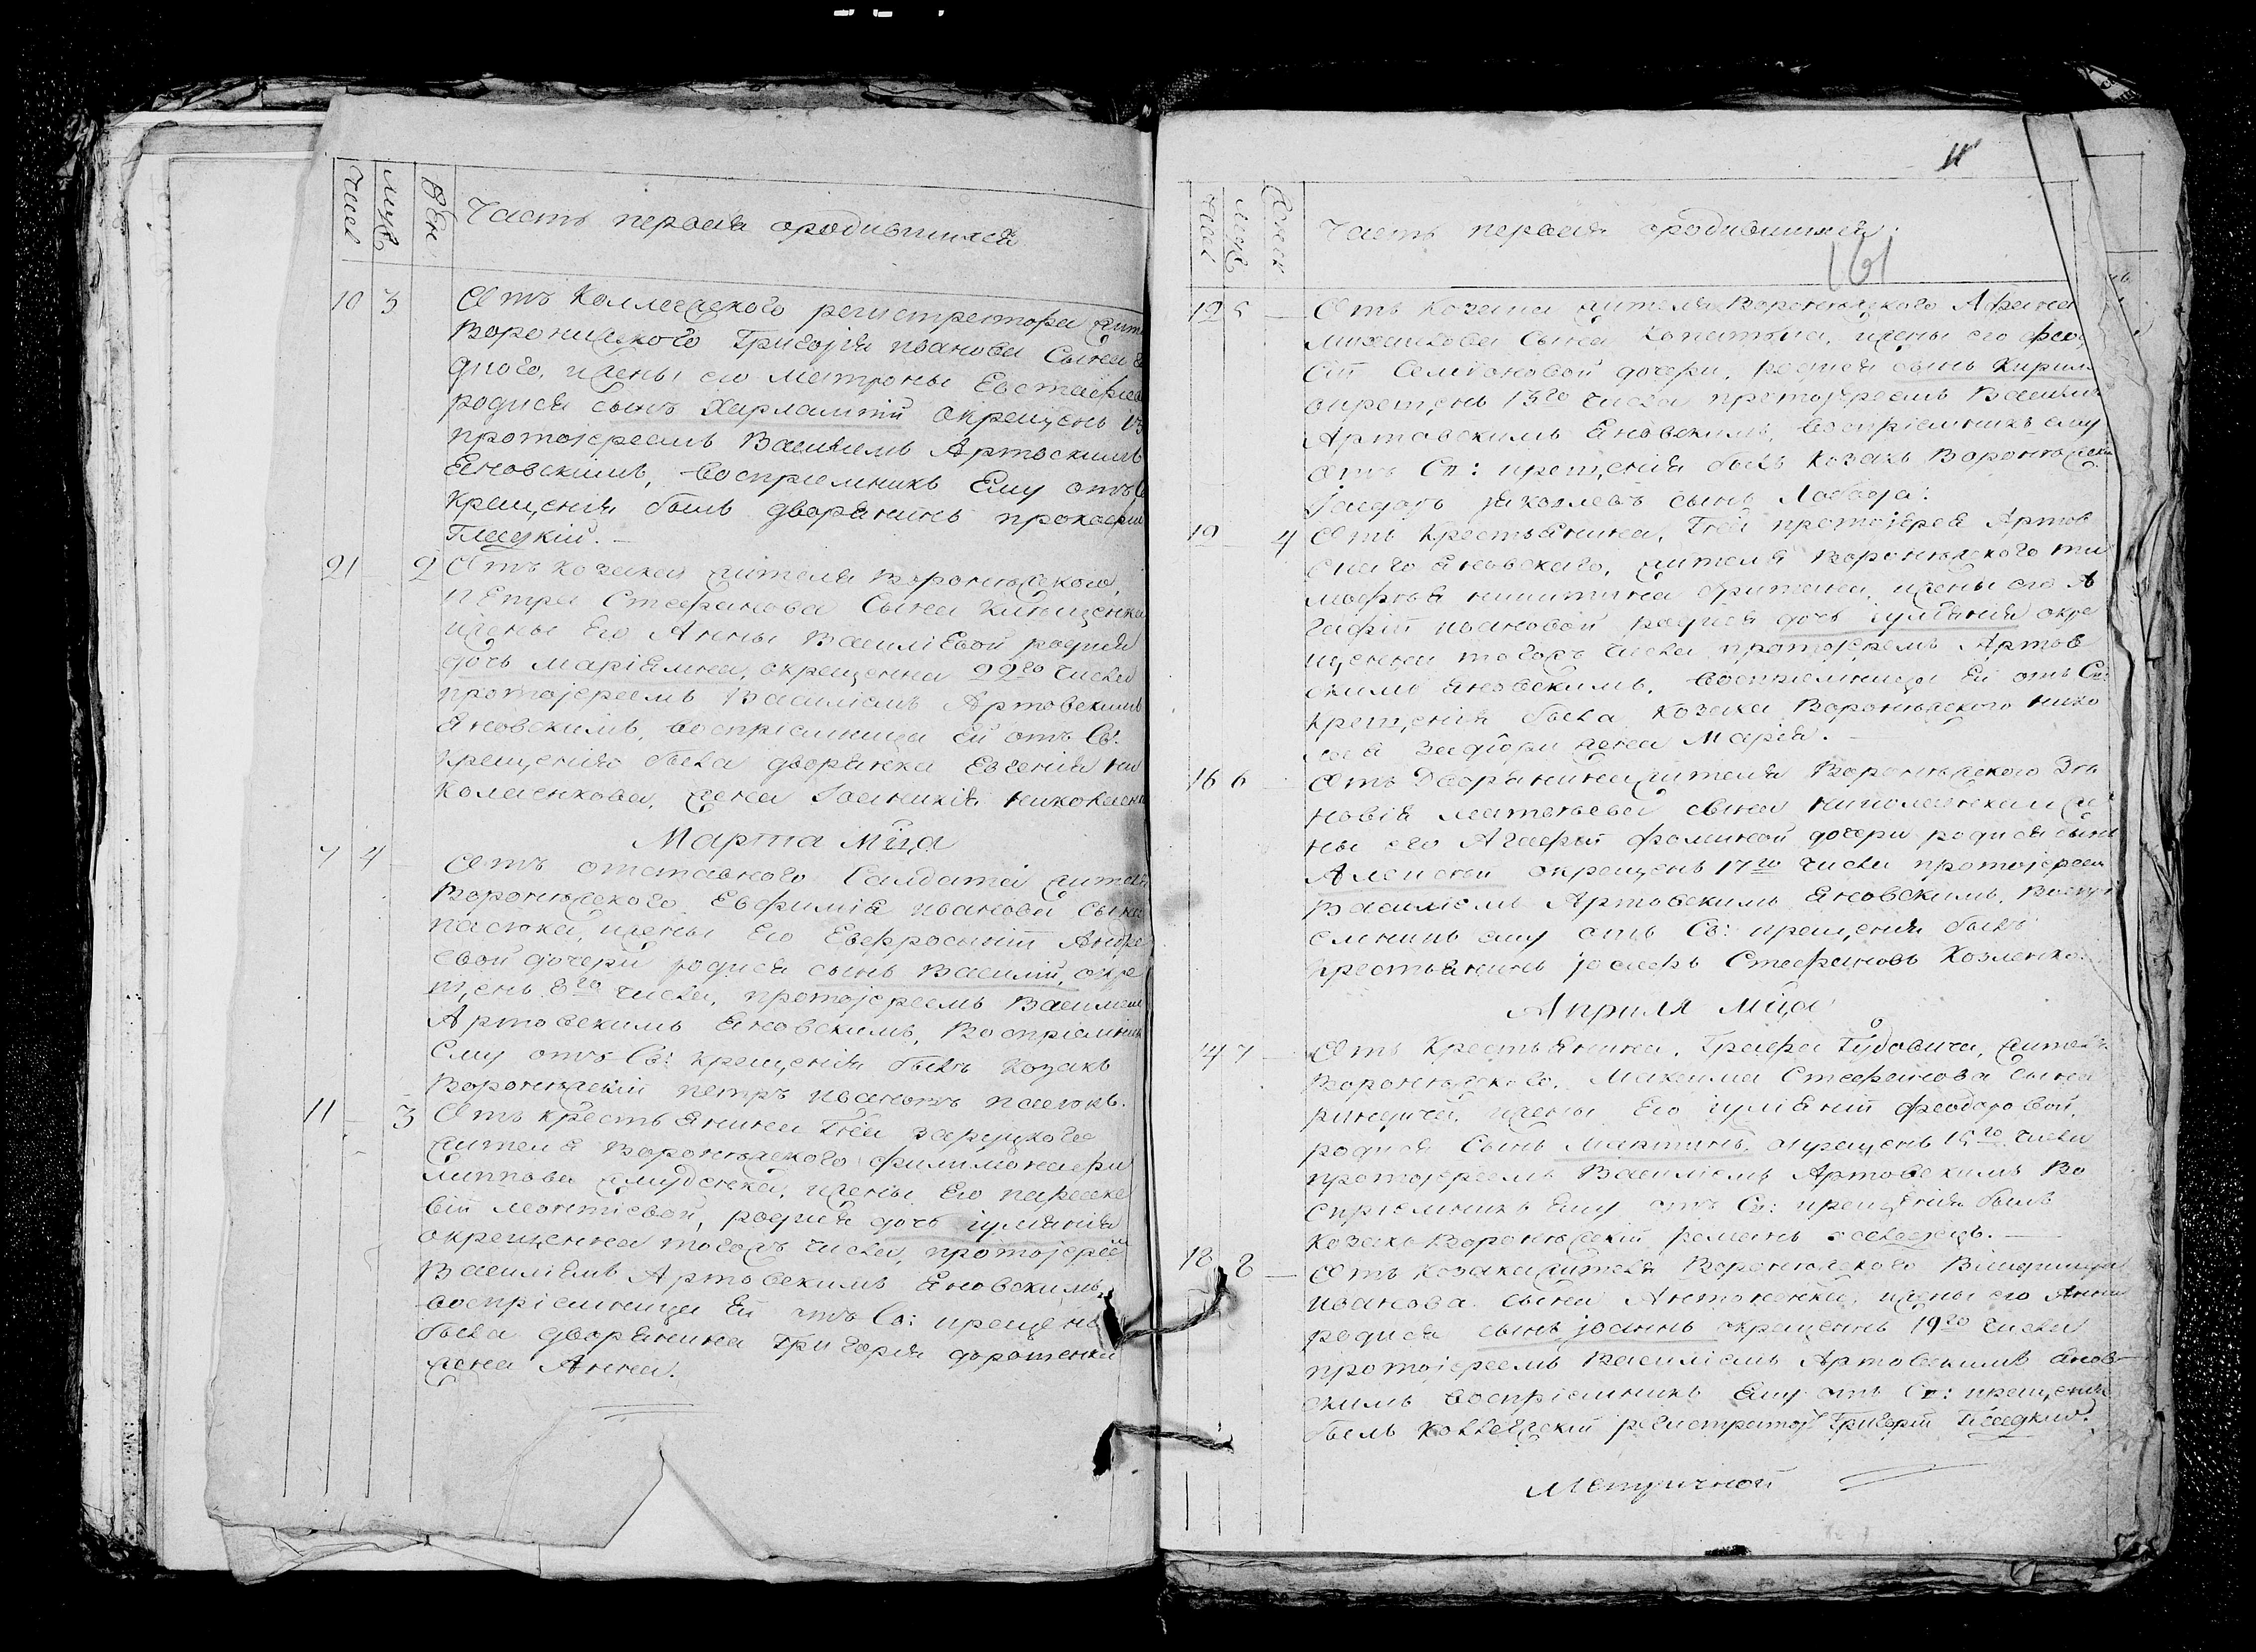 Числ
Муж
Жен
Часть первая ородившихся
10 3
Отъ Коллежского регистратора жит
Воронѣжского Григорія иванова Сына
дкого, и жены его Матроны Евстафие
родися сынъ Харлампій окрещенъ
протоіереемъ Василіемъ Артовскимъ
Яновскимъ, восприемникъ Ему отъ
крещенія былъ дворянинъ прокофи
Гладкій.
21 2
Отъ козака жителя Воронѣжского,
петра Стефанова Сына
и жены Его Анны Василіевой родися
дочь Маріамна, окрещенна 22го числа
протоіереемъ Василіемъ Артовскимъ
Яновскимъ, воспріемница ей отъ Св:
крещенія была дворянка Евгенія ни
Коласнкова, жена Іоаникія николаенк
Марта Мца
7 4
Отъ отставного Салдата жителя
Воронѣжского Евфимія иванова сына
пасюка, и жены Его Евфросиніи Андре
евой дочери родися сынъ Василій, окре
щенъ 8го числа, протоіереемъ Василием
Артовскимъ Яновскимъ, Воспріемникъ
Ему отъ Св: крещенія былъ Козакъ
Воронѣжскій петръ ивановъ пасюкъ.
11 3
Отъ крестьянина Гна Заруцкого
жителя Воронѣжского филимона фи
липпова жмуденка, и жены Его параске
віи леонтіевой, родися дочь іуліянія
окрещенна тогожъ числа, протоіерее
Василіемъ Артовскимъ Яновскимъ,
воспріемница Ей отъ Св: крещенія
была дворянина Григорія дорошенка
жена Анна.
11
161
Числ
Муж
Женск
Часть первая ородившихся.
12 5
Отъ Козака жителя Воронѣжского Афанас
михайлова Сына Копитька, и жены его фео
сіи Семіоновой дочери, родися сынъ Кирил
окрещенъ 13го числа протоіереемъ Василіем
Артовскимъ Яновскимъ, воспріемникъ ему
отъ Св: крещенія былъ Козакъ Воронѣжскій
яковлевъ сынъ Лобода:
19 4
Отъ Крестьянина, Гна протоіерея Артов
скаго Яновскаго, жителя Воронѣжского ти
мофѣя никитина, и жены его А
гафіи ивановой родися дочь іуліянія окре
щенна тогожъ числа протоіереемъ Артов
скимъ Яновскимъ, воспріемница Ей отъ Св:
крещенія была Козака Воронѣжского нико
лая жена Марія.
16 6
Отъ Дворянина жителя Воронѣжского Зи
новія Матвѣева сына николаенка и же
ны его Агафіи фоминой дочери родися сынъ
Алексѣй окрещенъ 17го числа протоіереем
Василіемъ Артовскимъ Яновскимъ, Воспрі
емникъ ему отъ Св: крещенія былъ
крестьянинъ іосифъ Стефановъ Козленко.
Априля Мца
4 7
Отъ Крестьянина, Графа Гудовича, жителя
Воронѣжского, Максима Стефанова сына
и жены Его іуліяніи феодоровой,
родися Сынъ Мартинъ, окрещенъ числа
протоіереемъ Василіемъ Артовскимъ Во
спріемникъ Ему отъ Св: крещенія былъ
Козакъ Воронѣжскій романъ
18 8
Отъ Козака жителя Воронѣжского Владимира
иванова сына Антоненка, и жены его Анны
родися сынъ іоаннъ окрещеннъ 19го числа
протоіереемъ Василіемъ Артовскимъ Янов
скимъ воспріемникъ Ему отъ Св: крещенія
былъ Коллежскій регистраторъ Григорій Гладкий.
Метричной